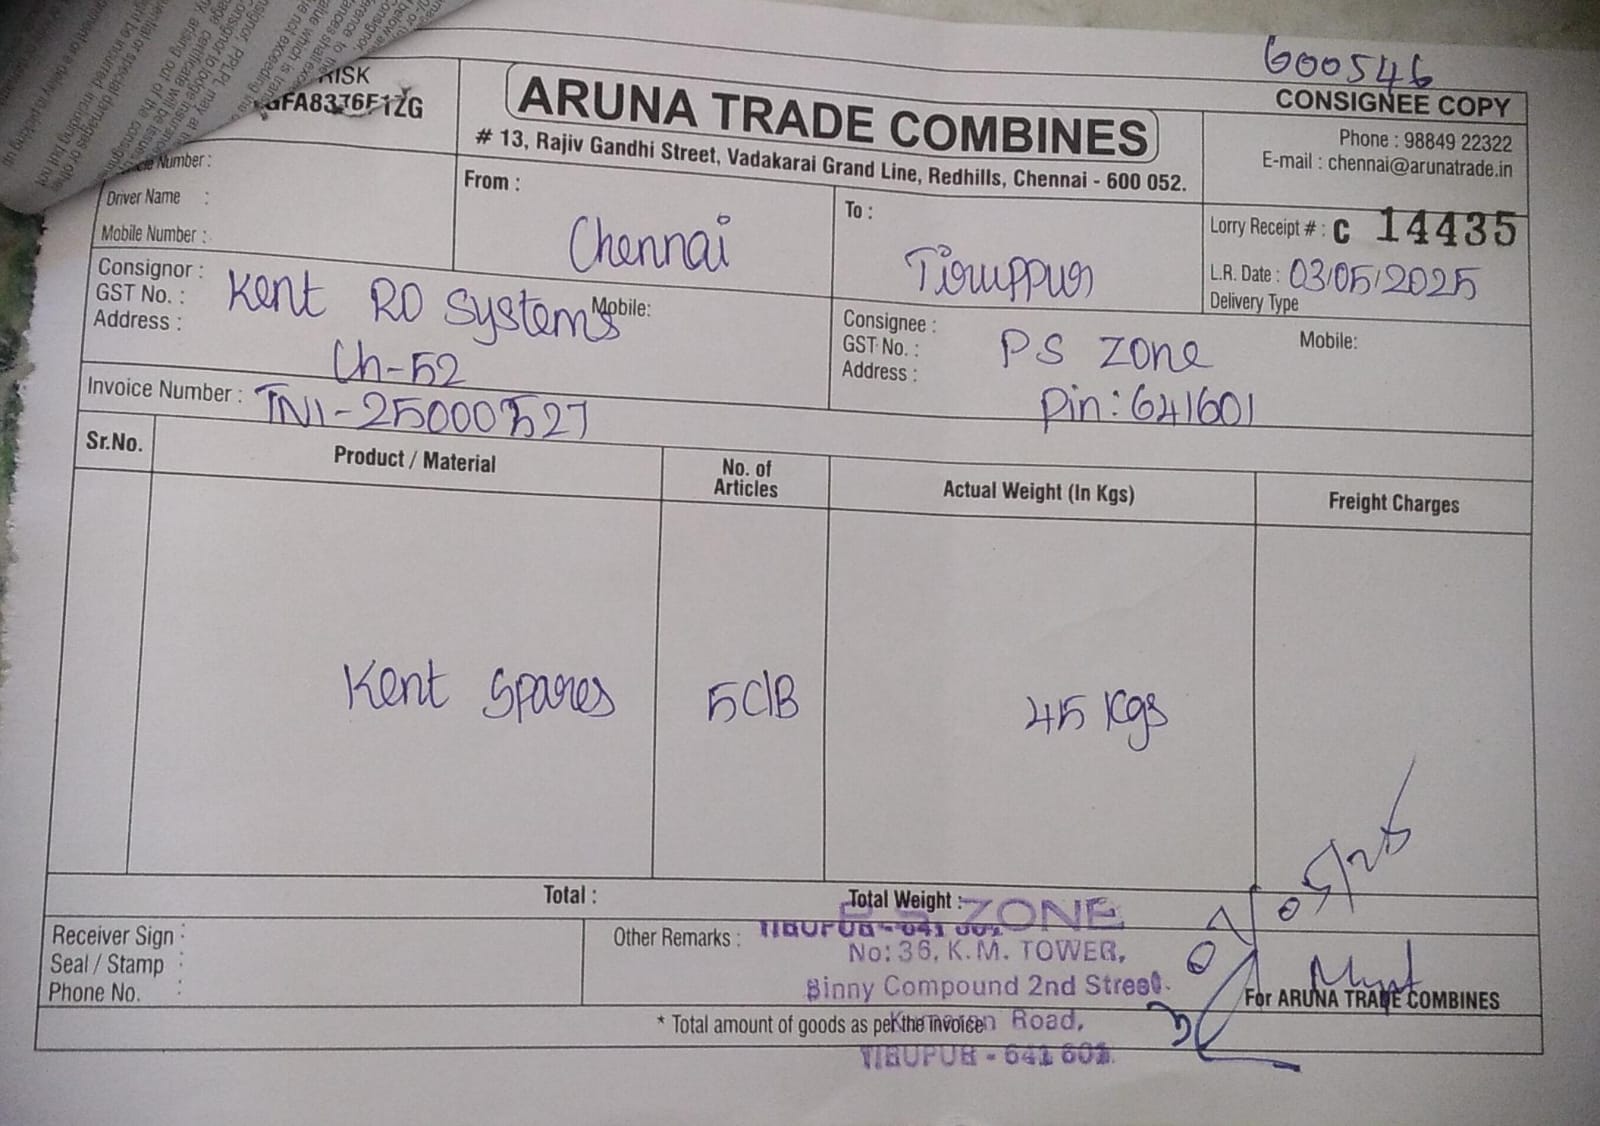 600546
CONSIGNEE COPY
RISK
GFA8376F1ZG
ARUNA TRADE COMBINES
# 13, Rajiv Gandhi Street, Vadakarai Grand Line, Redhills, Chennai - 600 052.
Phone : 98849 22322
E-mail : chennai@arunatrade.in
Number :
Driver Name :
Mobile Number :
From :
Chennai
To :
Tiruppur
Lorry Receipt # : C 14435
L.R. Date : 03/05/2025
Delivery Type
Consignor : Kent RO Systems
GST No. : Mobile:
Address : Ch-52
Consignee : PS Zone
GST No. : Mobile:
Address : Pin: 641601
Invoice Number : TN1-25000527
Sr.No.
Product / Material
No. of
Articles
Actual Weight (In Kgs)
Freight Charges
Kent Spares
5 C/B
45 Kgs
Total :
Total Weight :
Receiver Sign :
Seal / Stamp :
Phone No. :
Other Remarks :
P.S. ZONE
TIRUPUR - 641 601.
No: 36, K.M. TOWER,
Binny Compound 2nd Street.
Kumaran Road,
TIRUPUR - 641 601.
For ARUNA TRADE COMBINES
* Total amount of goods as per the invoice